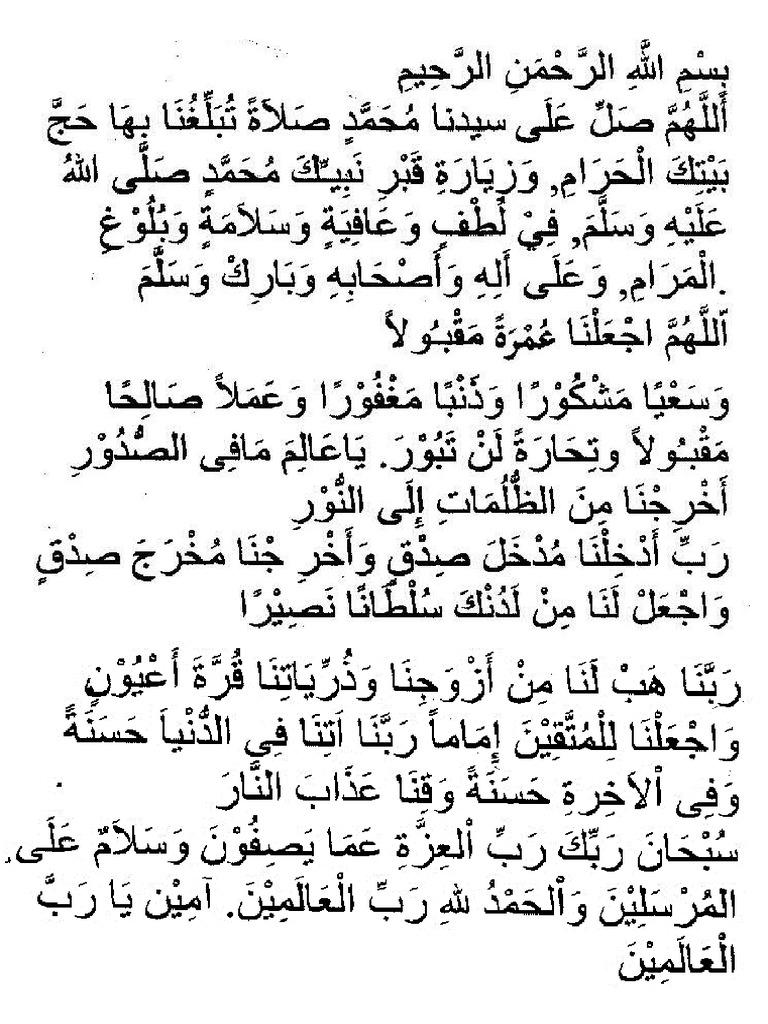 بِسْمِ اللَّهِ الرَّحْمَنِ الرَّحِيمِ
أَللَّهُمَّ صَلِّ عَلَى سيدنا مُحَمَّدٍ صَلاَةً تُبَلِّغُنَا بِهَا حَجَّ
بَيْتِكَ الْحَرَامِ, وَزِيَارَةِ قَبْرِ نَبِيِّكَ مُحَمَّدٍ صَلَّى اللهُ
عَلَيْهِ وَسَلَّمَ, فِيْ لُطْفٍ وَعَافِيَةٍ وَسَلاَمَةٍ وَبُلُوْغِ
الْمَرَامِ, وَعَلَى أَلِهِ وَأَصْحَابِهِ وَبَارِكْ وَسَلَّمَ.
اَللَّهُمَّ اجْعَلْنَا عُمْرَةً مَقْبُولاً
وَسَعْيًا مَشْكُوْرًا وَذَنْبًا مَغْفُوْرًا وَعَمَلاً صَالِحًا
مَقْبُولاً وتِحَارَةً لَنْ تَبُوْرَ. يَاعَالِمَ مَافِى الصُّدُوْرِ
أَخْرِجْنَا مِنَ الظُّلُمَاتِ إِلَى النُّوْرِ
رَبِّ أَدْخِلْنَا مُدْخَلَ صِدْقٍ وَأَخْرِ جْنَا مُخْرَجَ صِدْقٍ
وَاجْعَلْ لَنَا مِنْ لَدُنْكَ سُلْطَانًا نَصِيْرًا
رَبَّنَا هَبْ لَنَا مِنْ أَزْوَجِنَا وَذُرِّيَاتِنَا قُرَّةَ أَعْيُوْنٍ
وَاجْعَلْنَا لِلْمُتَّقِيْنَ إِمَاماً رَبَّنَا اَتِنَا فِى الدُّنْياَ حَسَنَةً
وَفِى ْالاَخِرِةِ حَسَنَةً وَقِنَا عَذَابَ النَّارَ
سُبْحَانَ رَبِّكَ رَبِّ ْالعِزَّةِ عَمَا يَصِفُوْنَ وَسَلاَمٌ عَلَى
المُرْسَلِيْنَ وَاْلحَمْدُ للهِ رَبِّ الْعَالَمِيْنَ. آمِيْن يَا رَبَّ
الْعَالَمِيْنَ